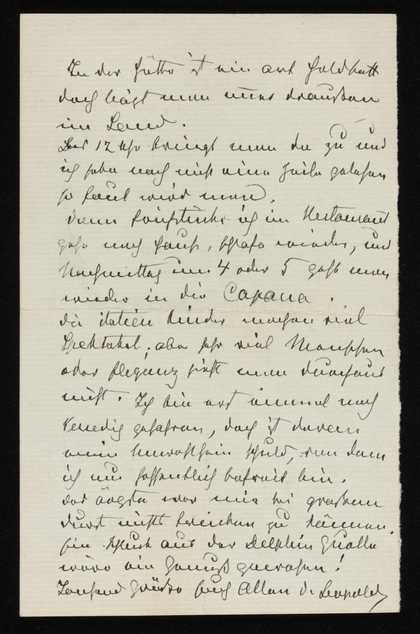 In der Hütte ist ein art Feldbett
doch liegt man immer draussen
im Sand.
Bis 12 Uhr bringt man da zu und
ich habe noch nicht eine Zeile gelesen
so faul wird man.
Dann frühstücke ich im Restaurant
gehe nach Haus, schlafe wieder, und
Nachmittag um 4 oder 5 geht man
wieder in die Capana.
die italien Kinder machen viel
Spektakel, aber sehr viel Menschen
oder Eleganz sieht man durchaus
nicht. Ich bin erst einmal nach
Venedig gefahren, doch ist daran
mein Unwohlsein schuld, von dem
ich nun hoffentlich befreit bin.
Das ärgste war mir bei grossem
Durst nichts trinken zu können.
Ein Schluck aus der Delphin Quelle
wäre ein Genuß gewesen!
Tausend Grüsse Euch Allen d. Leopold